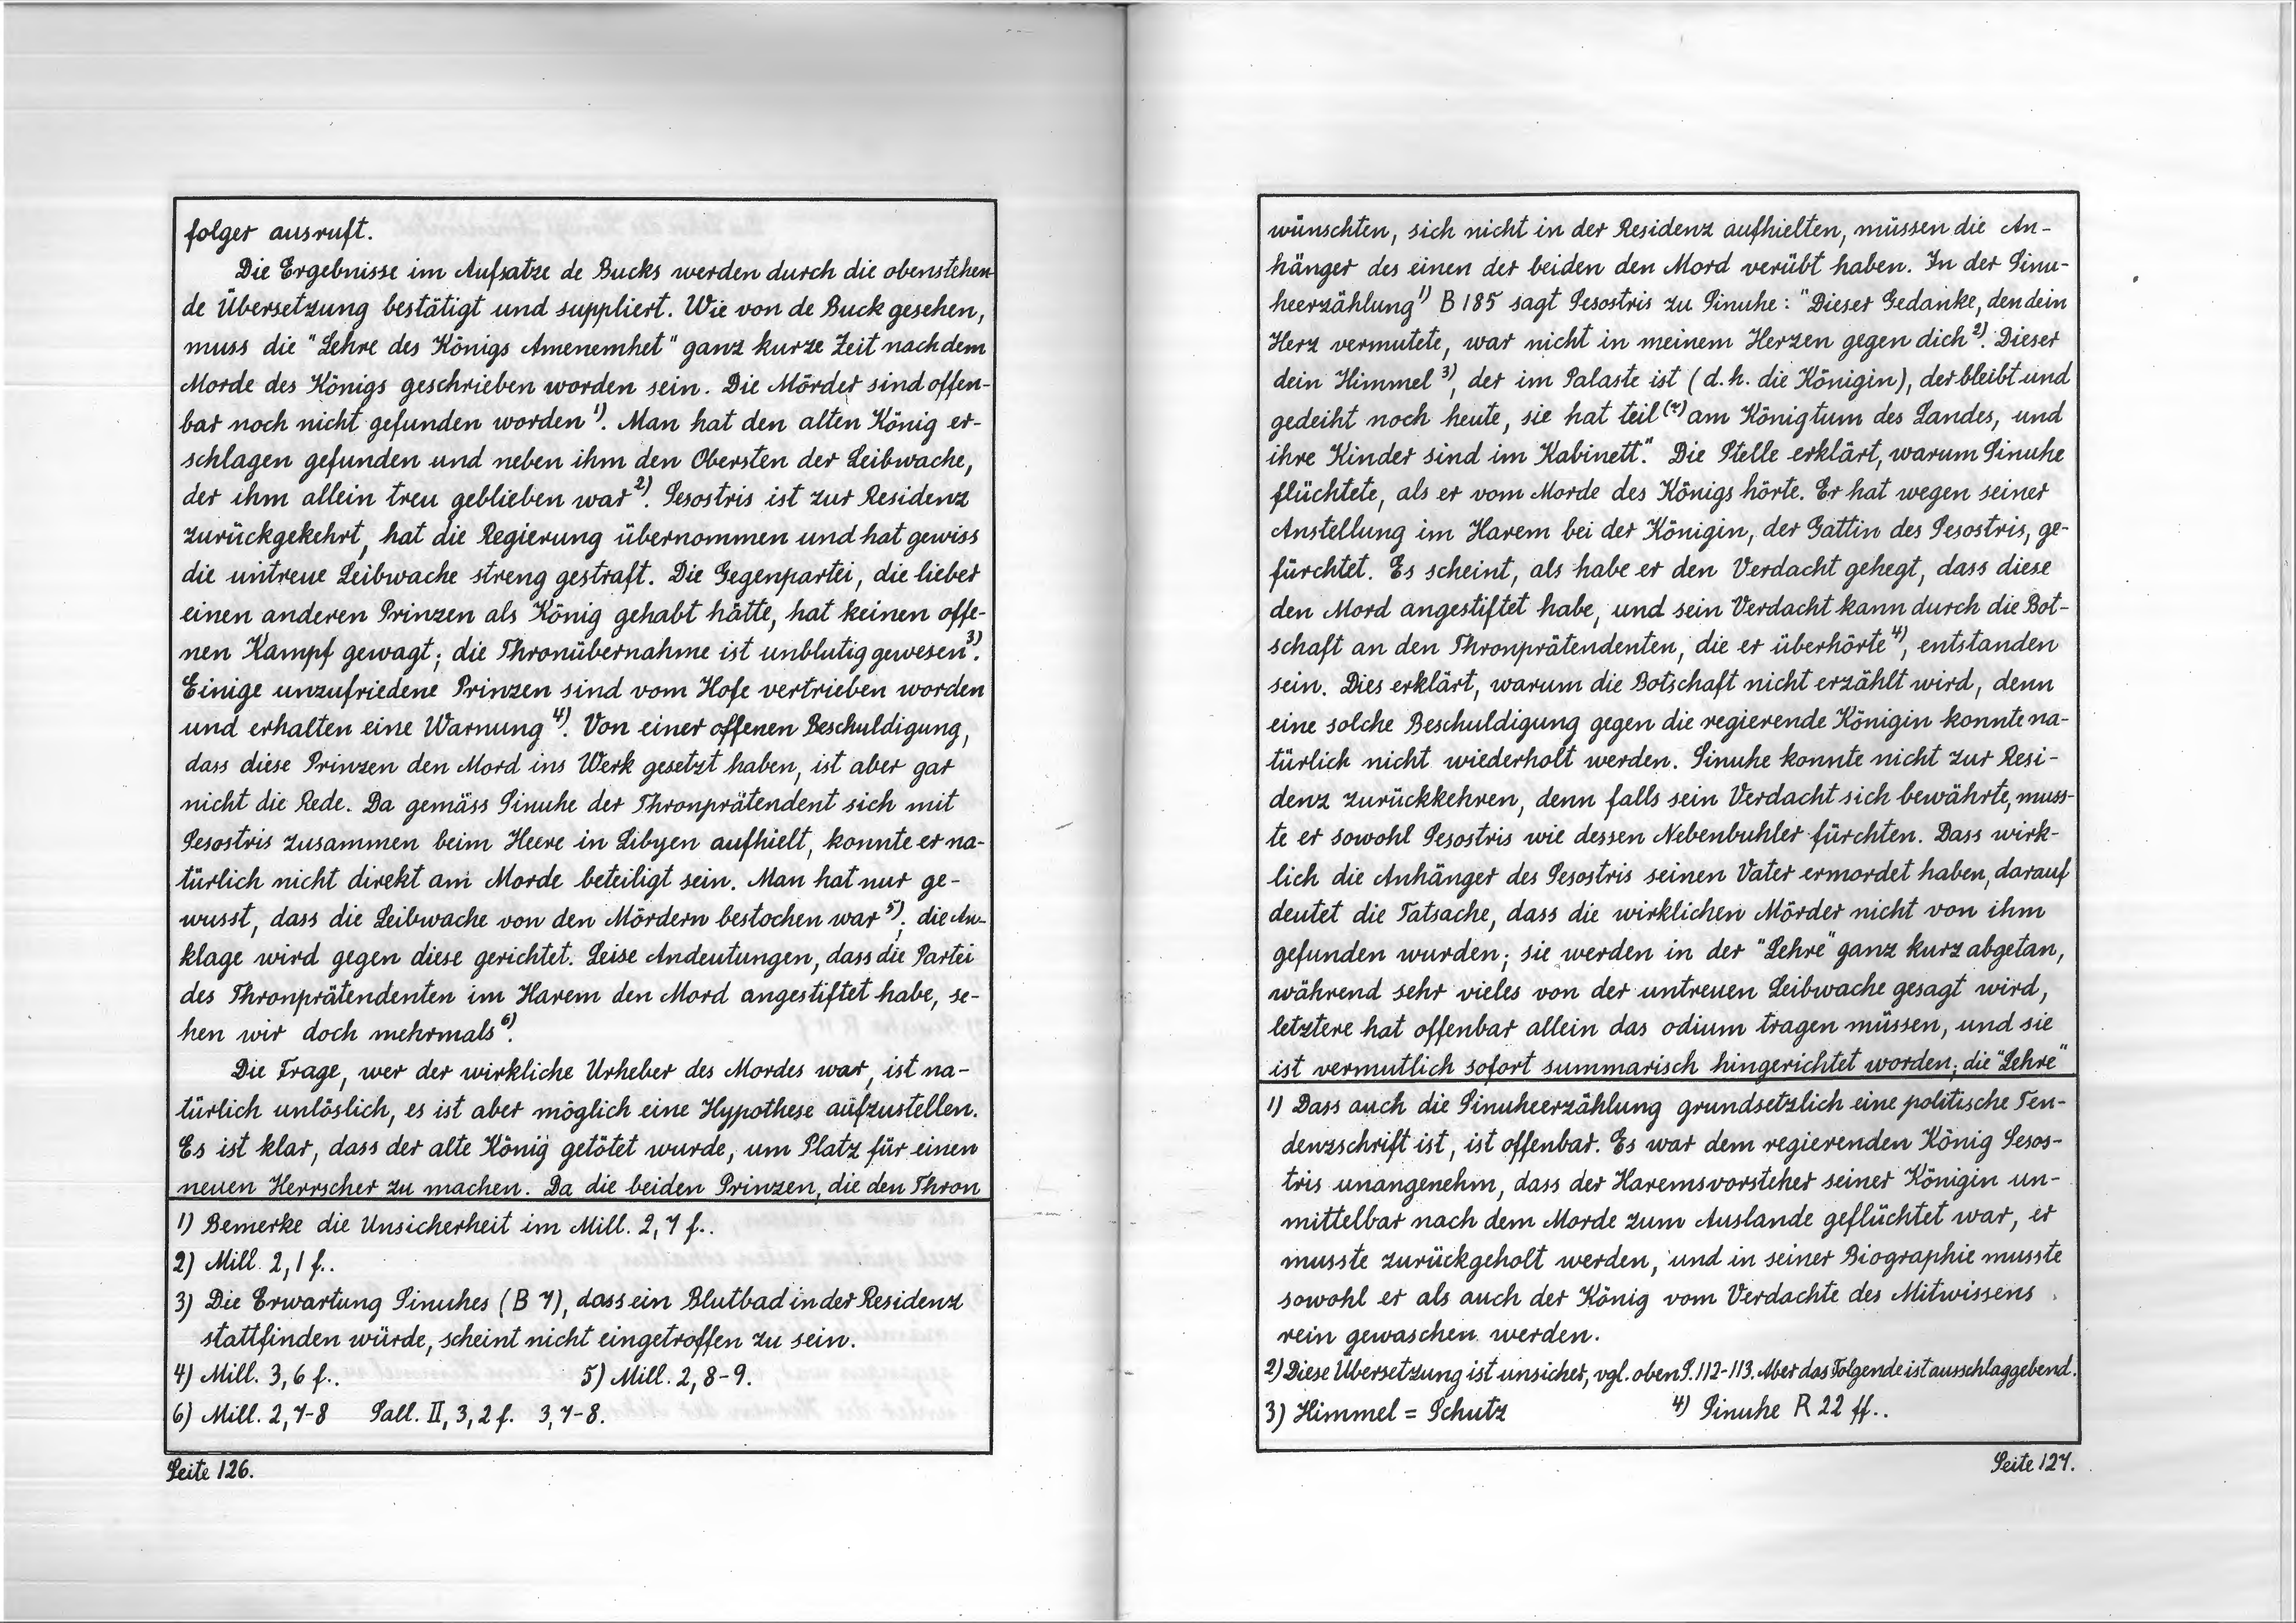 folger ausruft.
Die Ergebnisse im Aufsatze de Bucks werden durch die obenstehen-
de Übersetzung bestätigt und suppliert. Wie von de Buck gesehen,
muss die "Lehre des Königs Amenemhet" ganz kurze Zeit nach dem
Morde des Königs geschrieben worden sein. Die Mörder sind offen-
bar noch nicht gefunden worden 1). Man hat den alten König er-
schlagen gefunden und neben ihm den Obersten der Leibwache,
der ihm allein treu geblieben war 2). Sesostris ist zur Residenz
zurückgekehrt, hat die Regierung übernommen und hat gewiss
die untreue Leibwache streng gestraft. Die Gegenpartei, die lieber
einen anderen Prinzen als König gehabt hätte, hat keinen offe-
nen Kampf gewagt; die Thronübernahme ist unblutig gewesen 3).
Einige unzufriedene Prinzen sind vom Hofe vertrieben worden
und erhalten eine Warnung 4). Von einer offenen Beschuldigung,
dass diese Prinzen den Mord ins Werk gesetzt haben, ist aber gar
nicht die Rede. Da gemäss Sinuhe der Thronprätendent sich mit
Sesostris zusammen beim Heere in Libyen aufhielt, konnte er na-
türlich nicht direkt am Morde beteiligt sein. Man hat nur ge-
wusst, dass die Leibwache von den Mördern bestochen war 5); die An-
klage wird gegen diese gerichtet. Leise Andeutungen, dass die Partei
des Thronprätendenten im Harem den Mord angestiftet habe, se-
hen wir doch mehrmals 6).
Die Frage, wer der wirkliche Urheber des Mordes war, ist na-
türlich unlöslich, es ist aber möglich eine Hypothese aufzustellen.
Es ist klar, dass der alte König getötet wurde, um Platz für einen
neuen Herrscher zu machen. Da die beiden Prinzen, die den Thron
1) Bemerke die Unsicherheit im Mill. 2,7 f..
2) Mill. 2,1 f..
3) Die Erwartung Sinuhes (B 7), dass ein Blutbad in der Residenz
stattfinden würde, scheint nicht eingetroffen zu sein.
4) Mill. 3,6 f.. 5) Mill. 2,8-9.
6) Mill. 2,7-8 Sall. II, 3,2 f. 3,7-8.
Seite 126.
wünschten, sich nicht in der Residenz aufhielten, müssen die An-
hänger des einen der beiden den Mord verübt haben. In der Sinu-
heerzählung 1) B 185 sagt Sesostris zu Sinuhe: "Dieser Gedanke, den dein
Herz vermutete, war nicht in meinem Herzen gegen dich 2). Dieser
dein Himmel 3), der im Palaste ist (d.h. die Königin), der bleibt und
gedeiht noch heute, sie hat teil (?) am Königtum des Landes, und
ihre Kinder sind im Kabinett." Die Stelle erklärt, warum Sinuhe
flüchtete, als er vom Morde des Königs hörte. Er hat wegen seiner
Anstellung im Harem bei der Königin, der Gattin des Sesostris, ge-
fürchtet. Es scheint, als habe er den Verdacht gehegt, dass diese
den Mord angestiftet habe, und sein Verdacht kann durch die Bot-
schaft an den Thronprätendenten, die er überhörte 4), entstanden
sein. Dies erklärt, warum die Botschaft nicht erzählt wird, denn
eine solche Beschuldigung gegen die regierende Königin konnte na-
türlich nicht wiederholt werden. Sinuhe konnte nicht zur Resi-
denz zurückkehren, denn falls sein Verdacht sich bewährte, muss-
te er sowohl Sesostris wie dessen Nebenbuhler fürchten. Dass wirk-
lich die Anhänger des Sesostris seinen Vater ermordet haben, darauf
deutet die Tatsache, dass die wirklichen Mörder nicht von ihm
gefunden wurden; sie werden in der "Lehre" ganz kurz abgetan,
während sehr vieles von der untreuen Leibwache gesagt wird,
letztere hat offenbar allein das odium tragen müssen, und sie
ist vermutlich sofort summarisch hingerichtet worden; die "Lehre"
1) Dass auch die Sinuheerzählung grundsetzlich eine politische Ten-
denzschrift ist, ist offenbar. Es war dem regierenden König Sesos-
tris unangenehm, dass der Haremsvorsteher seiner Königin un-
mittelbar nach dem Morde zum Auslande geflüchtet war, er
musste zurückgeholt werden, und in seiner Biographie musste
sowohl er als auch der König vom Verdachte des Mitwissens
rein gewaschen werden.
2) Diese Übersetzung ist unsicher, vgl. oben S. 112-113. Aber das Folgende ist ausschlaggebend.
3) Himmel = Schutz 4) Sinuhe R 22 ff..
Seite 127.